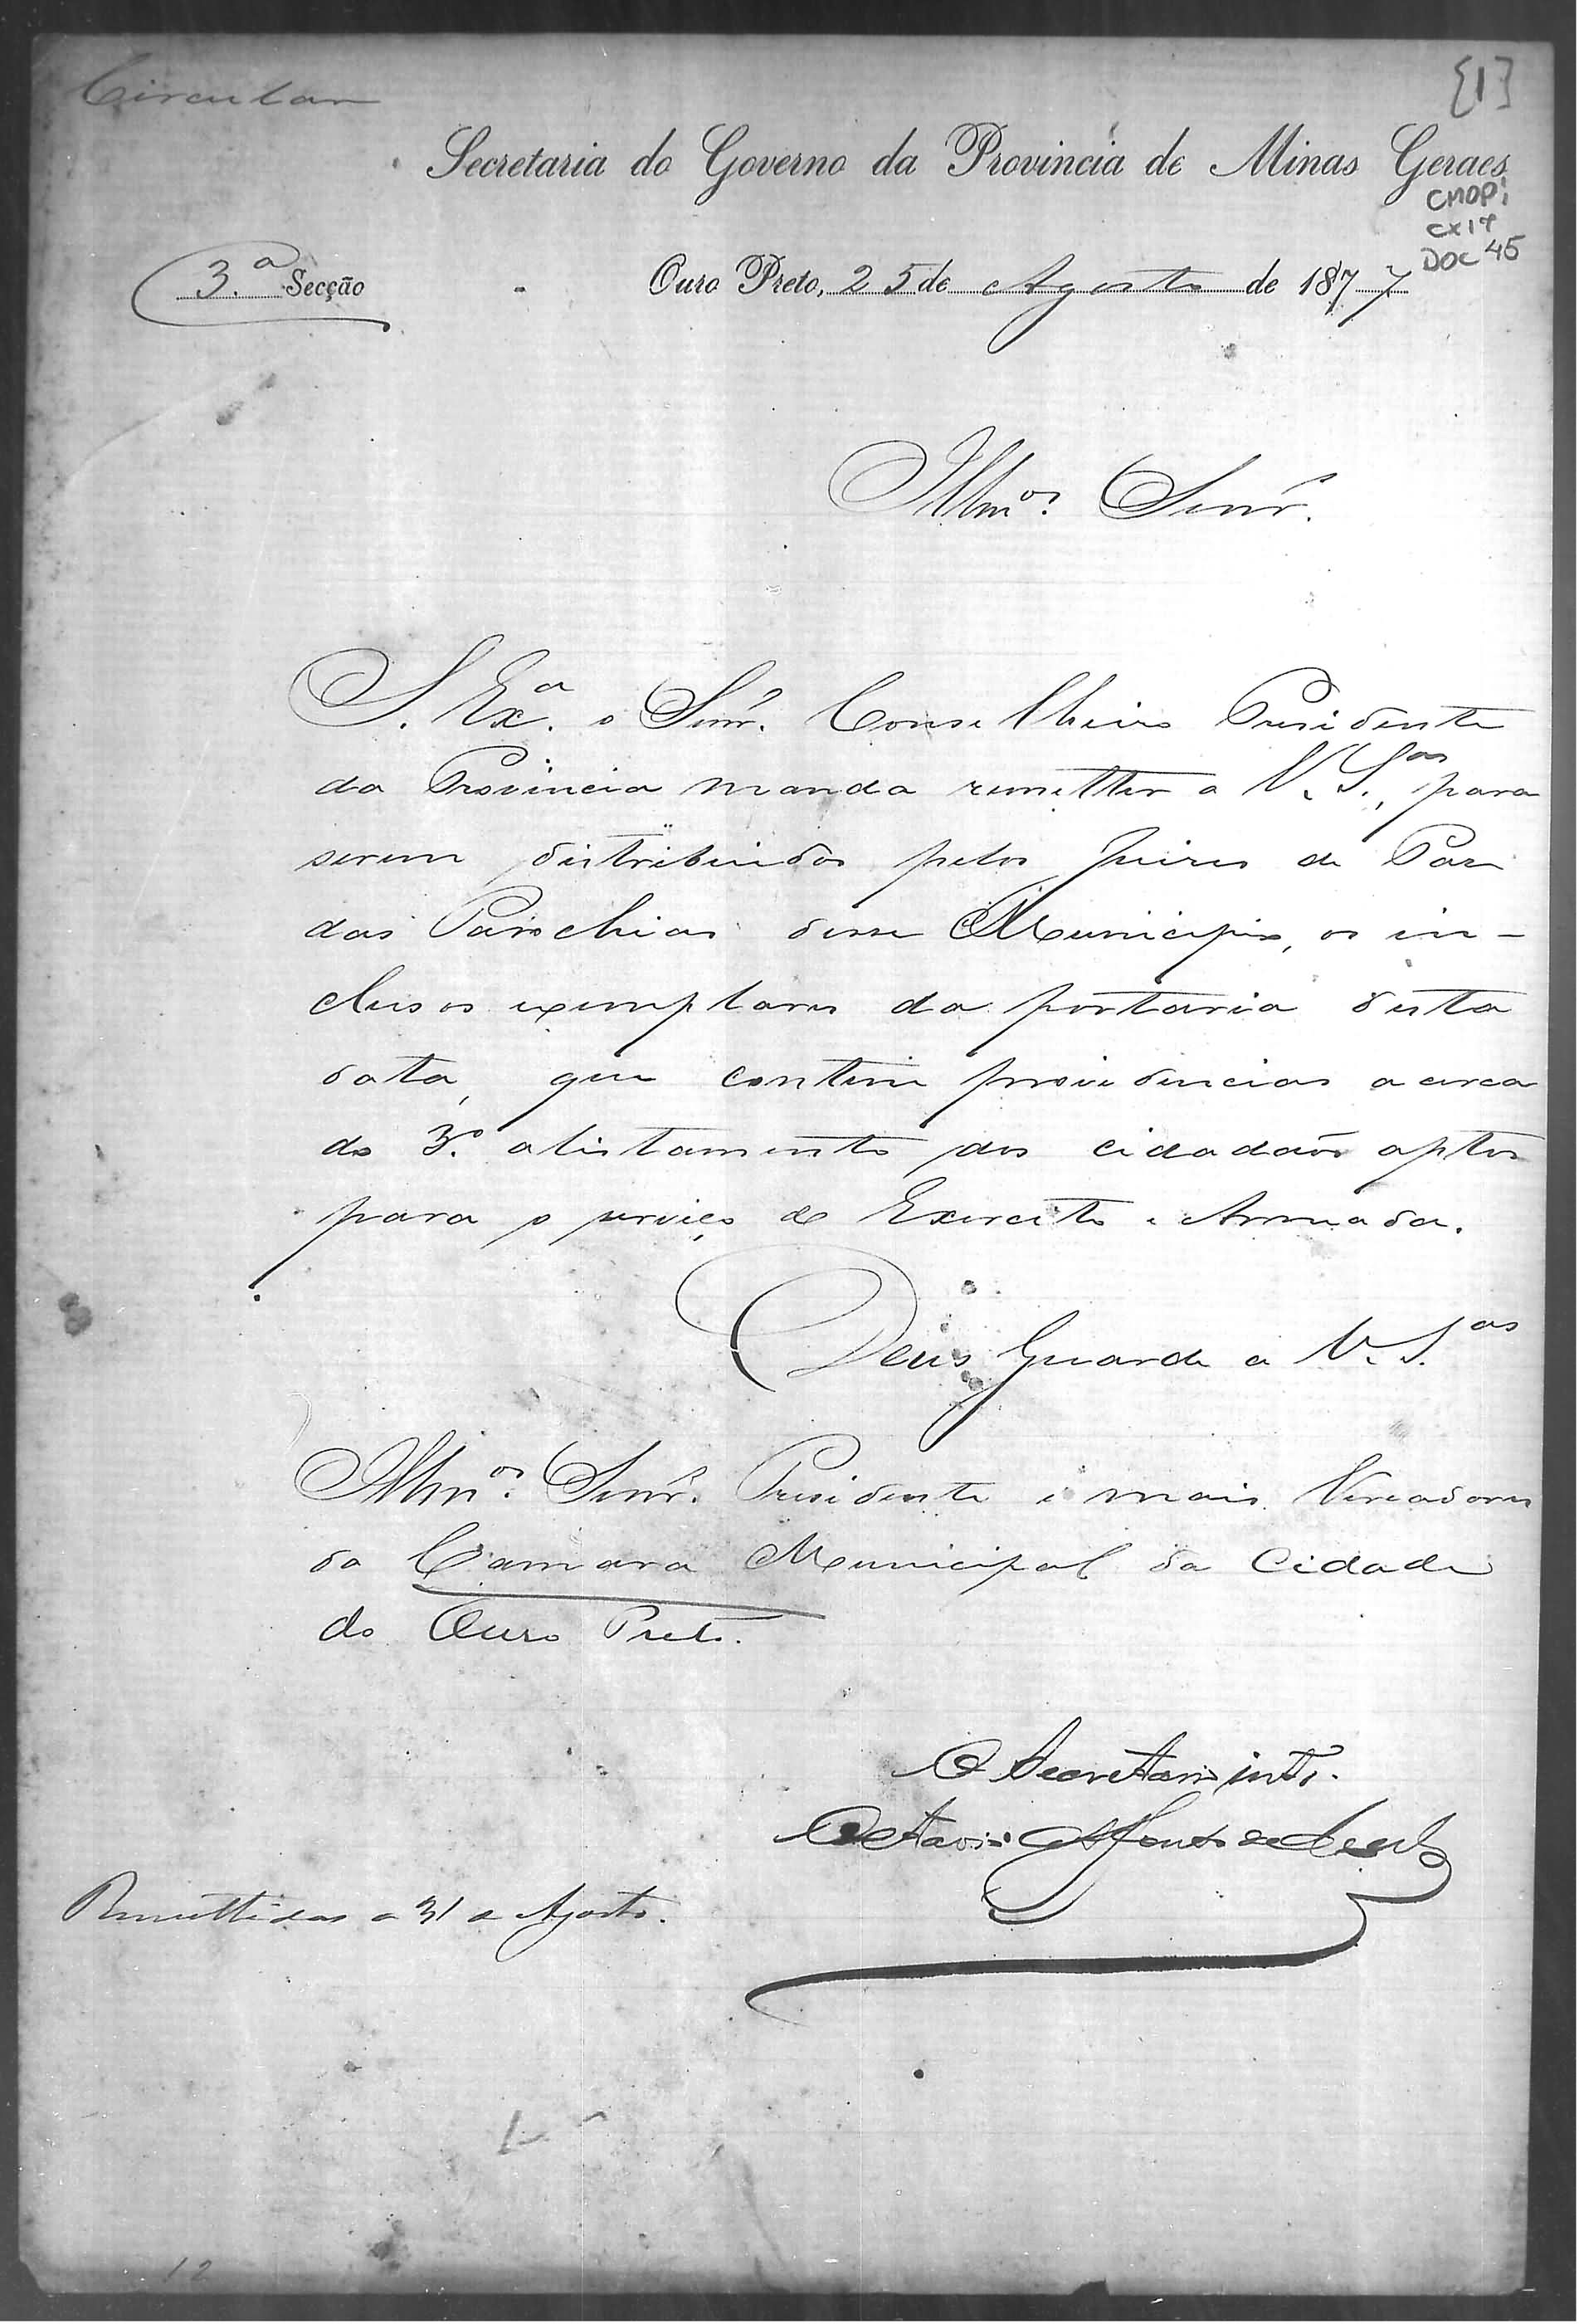 Circular
[1]
Secretaria do Governo da Provincia de Minas Geraes
CMOP:
CX17
DOC 45
3.ª Secção
Ouro Preto, 25 de Agosto de 1877
Illm.os Senr.
S. Ex.ª o Senr. Conselheiro Presidente
da Provincia manda remetter a V. S.as, para
serem distribuidos pelos Juizes de Paz
das Parochias desse Municipio, os in-
clusos exemplares da portaria desta
data, que contem providencias acerca
do 3.º alistamento dos cidadãos aptos
para o serviço do Exercito e Armada.
Deus Guarde a V. S.as
Illm.os Senr. Presidente e mais Vereadores
da Camara Municipal da Cidade
do Ouro Preto.
O Secretario int.º
Octavio Affonso de
Remettidas a 31 de Agosto.
12